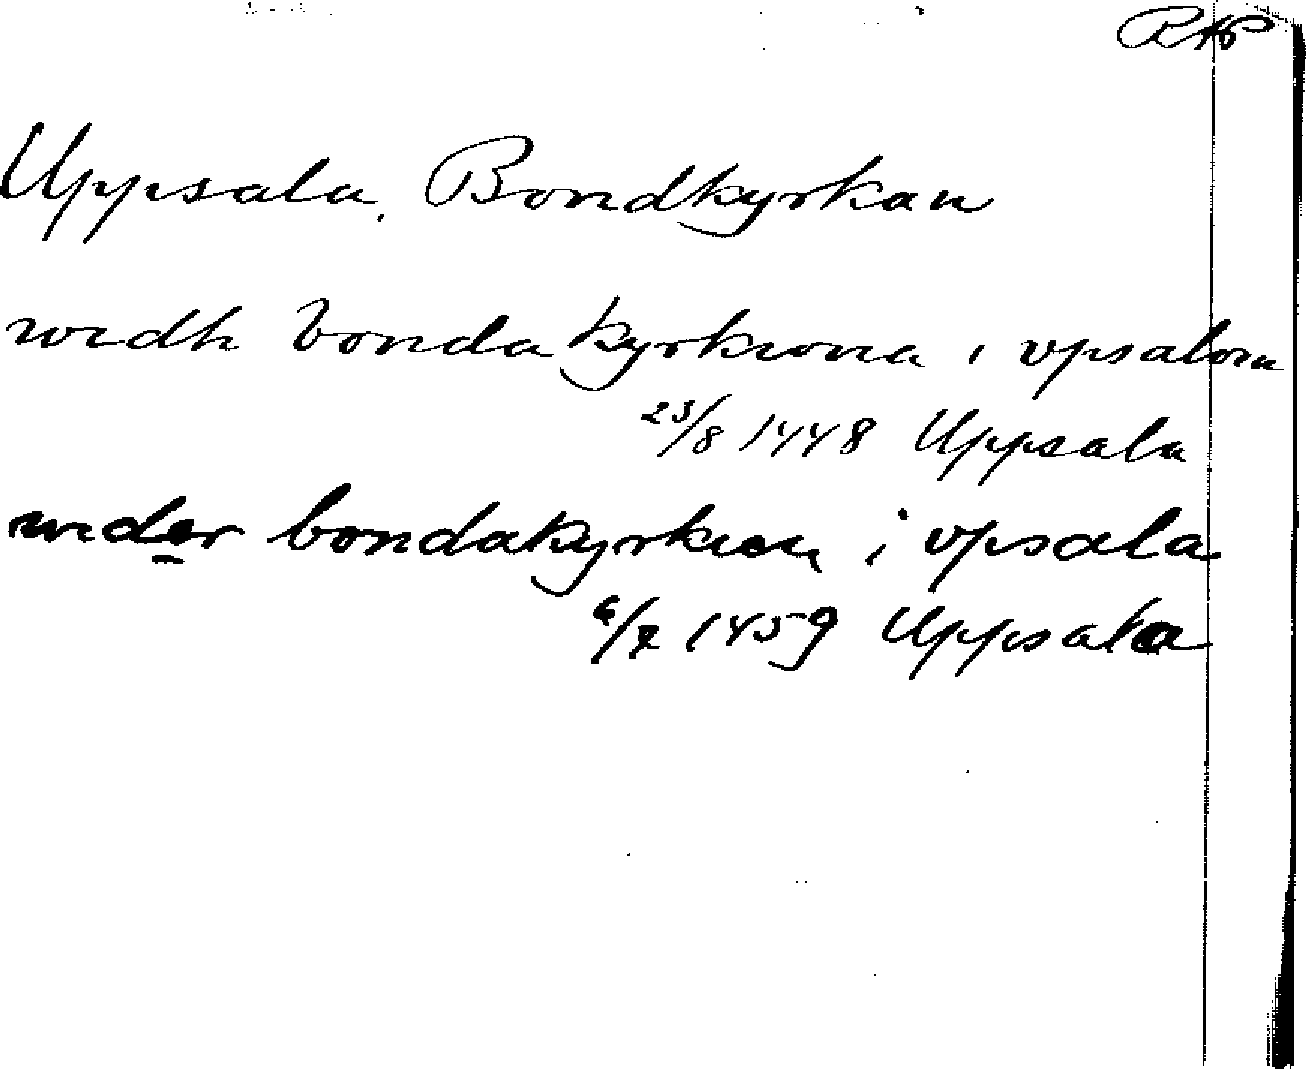 RAP
Uppsala, Bondkyrkan
widh bonda kyrkiona i vpsalom
23/8 1448 Uppsala
wider bondakyrkien i vpsala
6/7 1459 Uppsala